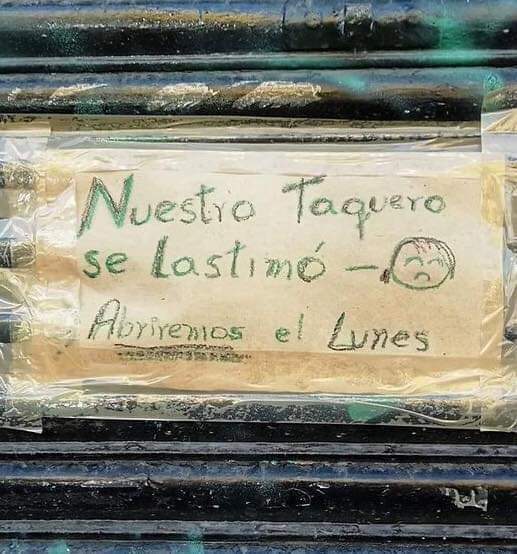 Nuestro Taquero
se Lastimó –
Abriremos el Lunes